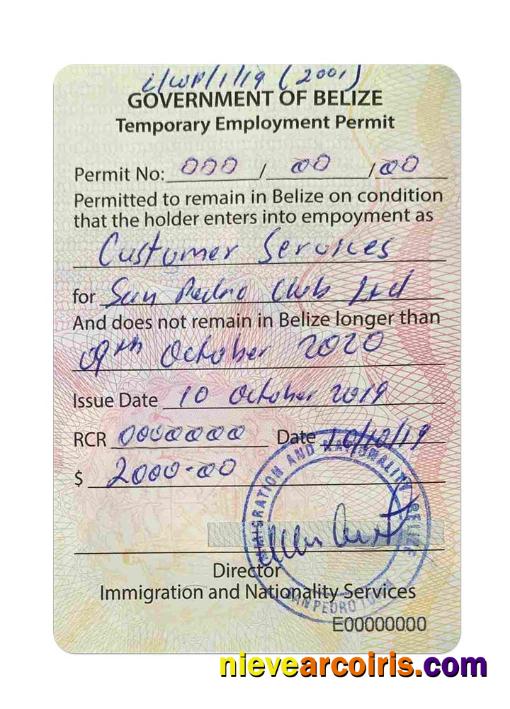 i/WP/1/19 (2001)
GOVERNMENT OF BELIZE
Temporary Employment Permit
Permit No: 000 / 00 / 00
Permitted to remain in Belize on condition
that the holder enters into empoyment as
Customer Services
for San Pedro Club Ltd
And does not remain in Belize longer than
09th October 2020
Issue Date 10 October 2019
RCR 0000000 Date 10/10/19
$ 2000-00
IMMIGRATION AND NATIONALITY BELIZE
SAN PEDRO TOWN
Director
Immigration and Nationality Services
E00000000
nievearcoiris.com